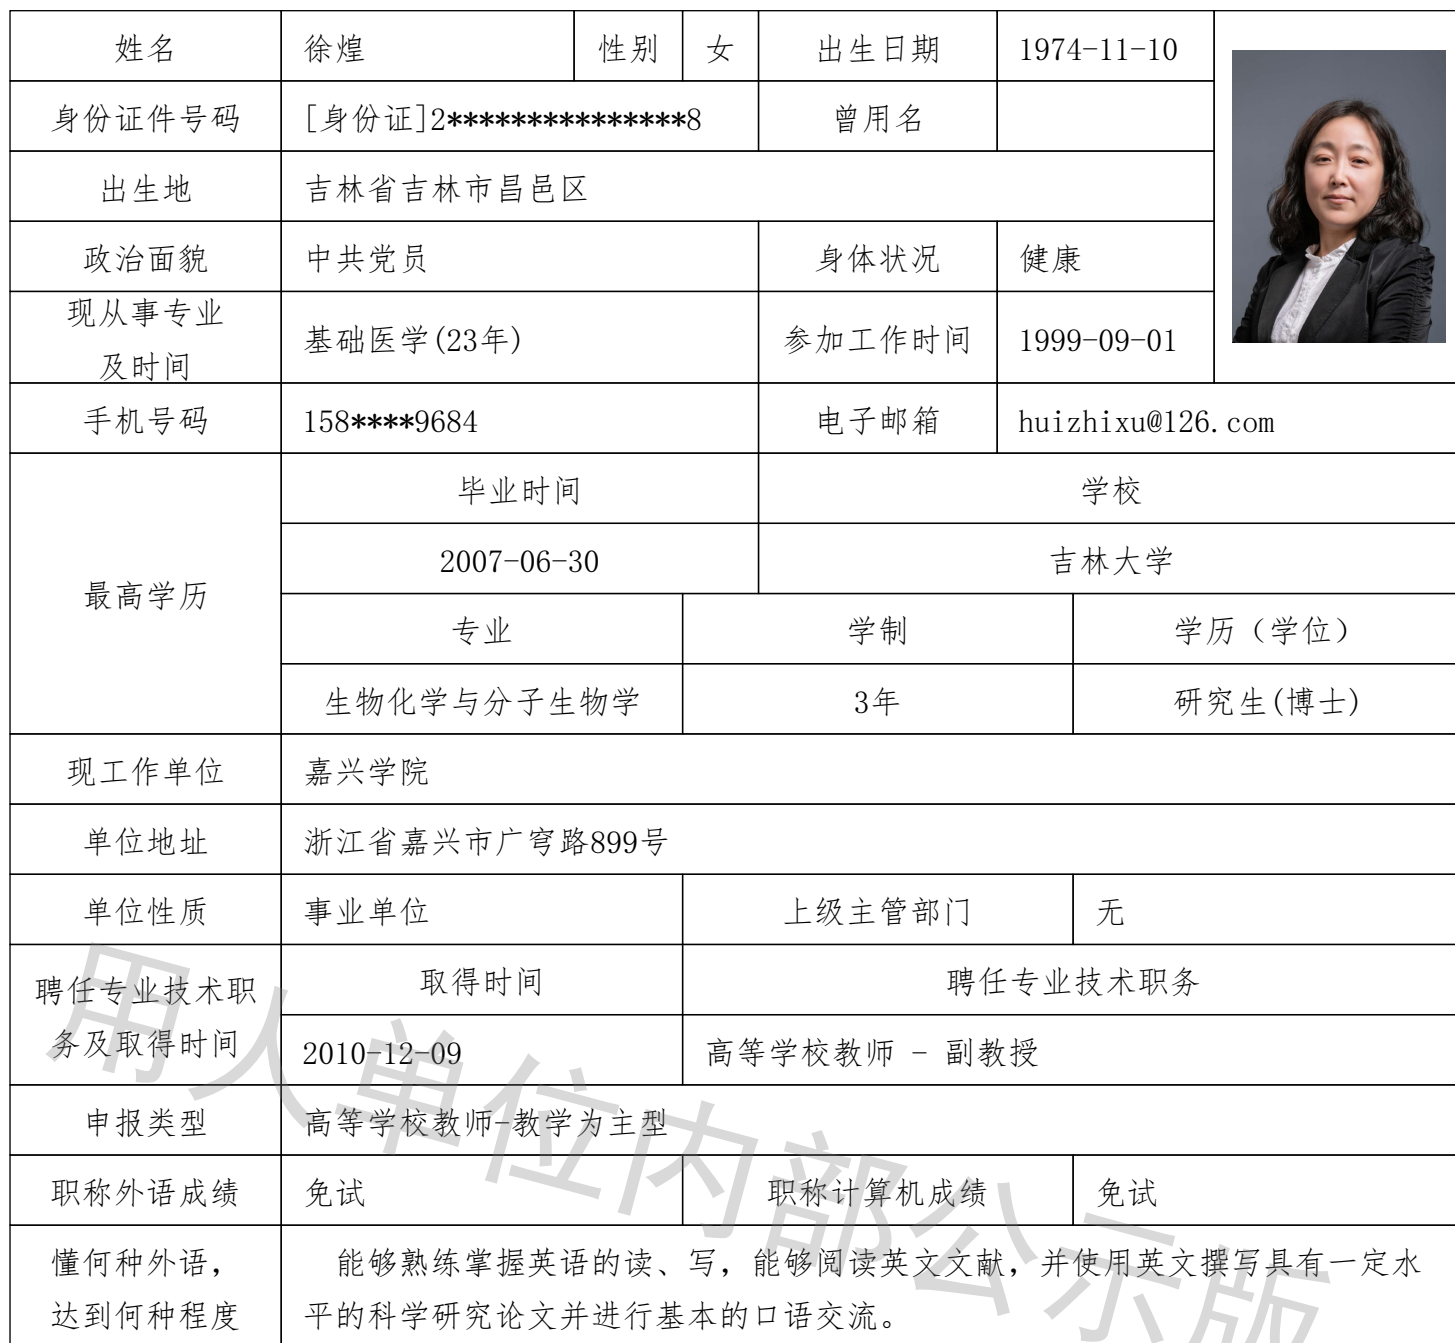 姓名 徐煌 性别 女 出生日期 1974-11-10
身份证件号码 [身份证]2***************8 曾用名
出生地 吉林省吉林市昌邑区
政治面貌 中共党员 身体状况 健康
现从事专业
及时间 基础医学(23年) 参加工作时间 1999-09-01
手机号码 158****9684 电子邮箱 huizhixu@126.com
最高学历
毕业时间 学校
2007-06-30 吉林大学
专业 学制 学历（学位）
生物化学与分子生物学 3年 研究生(博士)
现工作单位 嘉兴学院
单位地址 浙江省嘉兴市广穹路899号
单位性质 事业单位 上级主管部门 无
聘任专业技术职
务及取得时间
取得时间 聘任专业技术职务
2010-12-09 高等学校教师 - 副教授
申报类型 高等学校教师-教学为主型
职称外语成绩 免试 职称计算机成绩 免试
懂何种外语，
达到何种程度
能够熟练掌握英语的读、写，能够阅读英文文献，并使用英文撰写具有一定水
平的科学研究论文并进行基本的口语交流。
用人单位内部公示版